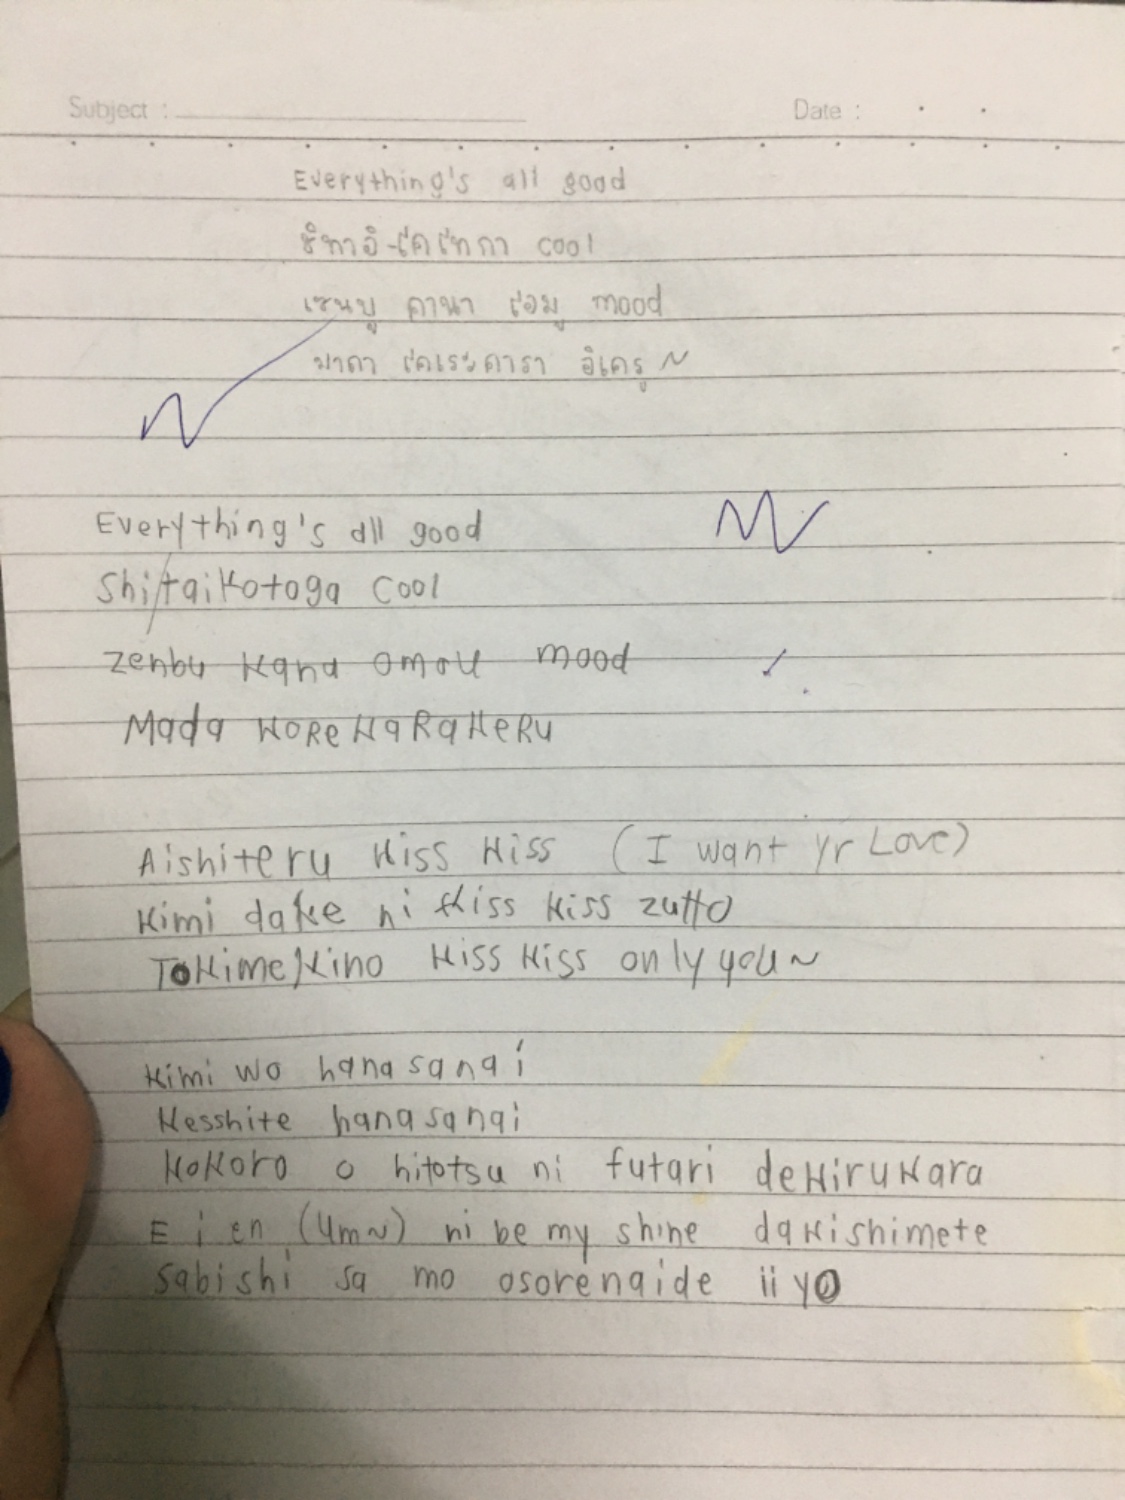 Subject :
Date :
Everything's all good
ชิทาอิ-โคโทกา cool
เซนบุ คานา โอมู mood
มาดา โคเระคารา อิเครุ ~
Everything's all good
Shitaikotoga Cool
Zenbu Kana omou mood
Mada KoReKaRaKeRu
Aishiteru Kiss Kiss (I want yr Love)
Kimi dake ni Kiss Kiss zutto
ToKimeKino Kiss Kiss only you~
Kimi wo hanasanai
Kesshite hanasanai
KoKoro o hitotsu ni futari deKiruKara
E i en (Um~) ni be my shine daKishimete
Sabishi sa mo osorenaide ii yo